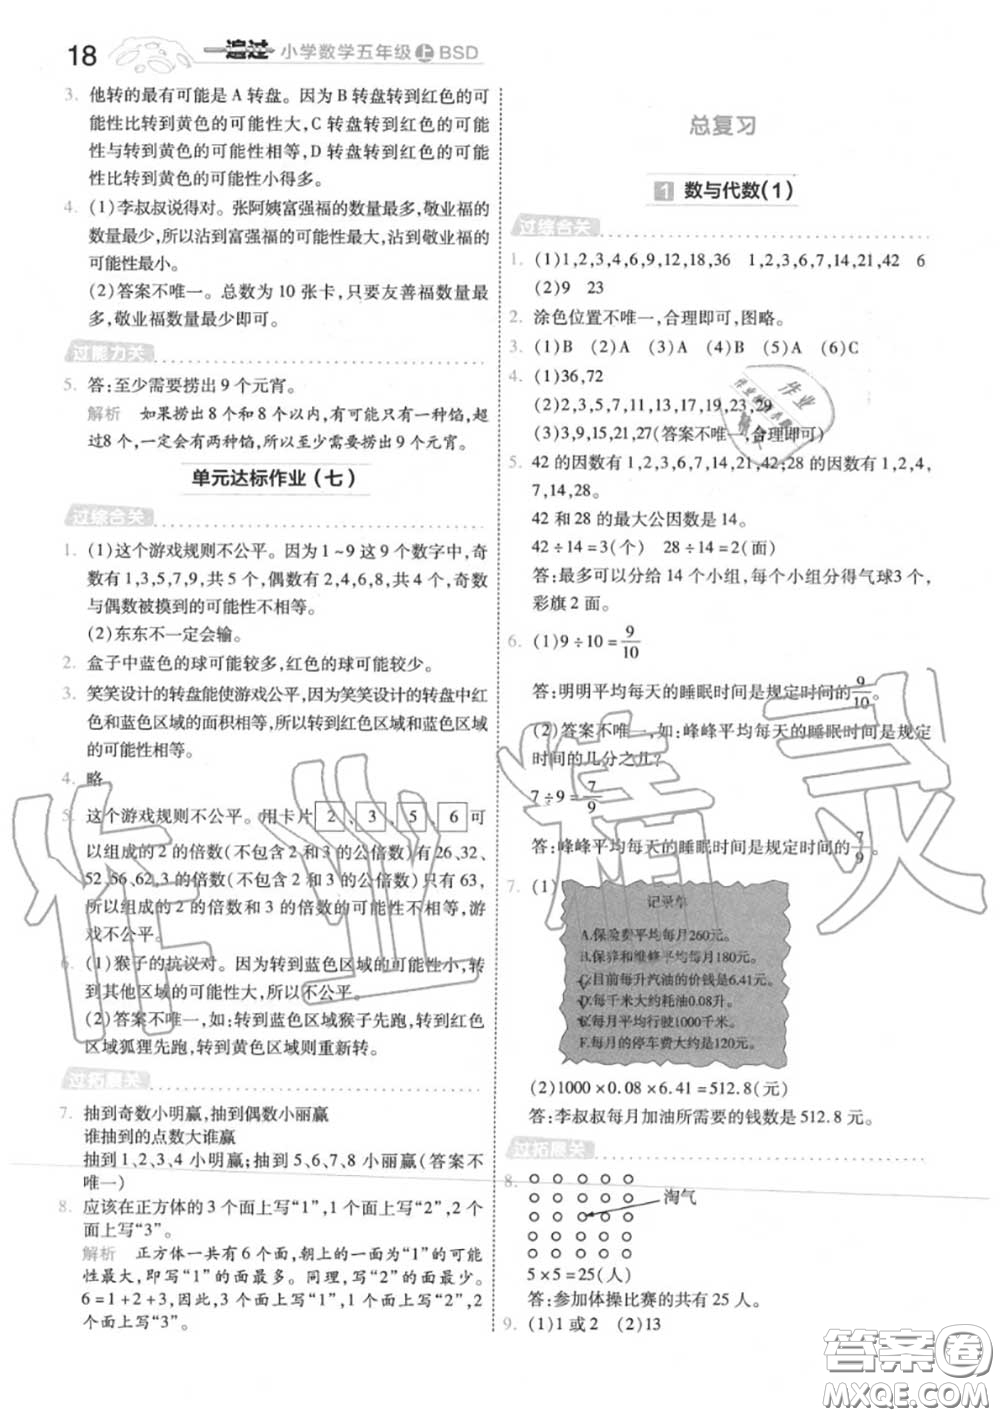 18
一遍过 小学数学五年级 上 BSD
3. 他转的最有可能是 A 转盘。因为 B 转盘转到红色的可
能性比转到黄色的可能性大,C 转盘转到红色的可能
性与转到黄色的可能性相等,D 转盘转到红色的可能
性比转到黄色的可能性小得多。
4. (1)李叔叔说得对。张阿姨富强福的数量最多,敬业福的
数量最少,所以沾到富强福的可能性最大,沾到敬业福的
可能性最小。
(2)答案不唯一。总数为 10 张卡,只要友善福数量最
多,敬业福数量最少即可。
过能力关
5. 答:至少需要捞出 9 个元宵。
解析 如果捞出 8 个和 8 个以内,有可能只有一种馅,超
过8 个,一定会有两种馅,所以至少需要捞出 9 个元宵。
单元达标作业(七)
过综合关
1. (1)这个游戏规则不公平。因为 1~9 这 9 个数字中,奇
数有 1,3,5,7,9,共 5 个,偶数有 2,4,6,8,共 4 个,奇数
与偶数被摸到的可能性不相等。
(2)东东不一定会输。
2. 盒子中蓝色的球可能较多,红色的球可能较少。
3. 笑笑设计的转盘能使游戏公平,因为笑笑设计的转盘中红
色和蓝色区域的面积相等,所以转到红色区域和蓝色区域
的可能性相等。
4. 略
5. 这个游戏规则不公平。用卡片 2、3、5、6 可
以组成的 2 的倍数(不包含 2 和 3 的公倍数)有 26,32,
52,56,62,3 的倍数(不包含 2 和 3 的公倍数)只有 63,
所以组成的 2 的倍数和 3 的倍数的可能性不相等,游
戏不公平。
6. (1)猴子的抗议对。因为转到蓝色区域的可能性小,转
到其他区域的可能性大,所以不公平。
(2)答案不唯一,如:转到蓝色区域猴子先跑,转到红色
区域狐狸先跑,转到黄色区域则重新转。
过拓展关
7. 抽到奇数小明赢,抽到偶数小丽赢
谁抽到的点数大谁赢
抽到 1,2,3,4 小明赢;抽到 5,6,7,8 小丽赢(答案不
唯一)
8. 应该在正方体的 3 个面上写“1”,1 个面上写“2”,2 个
面上写“3”。
解析 正方体一共有 6 个面,朝上的一面为“1”的可能
性最大,即写“1”的面最多。同理,写“2”的面最少。
6=1+2+3,因此,3 个面上写“1”,1 个面上写“2”,2
个面上写“3”。
总复习
1 数与代数(1)
过综合关
1. (1)1,2,3,4,6,9,12,18,36 1,2,3,6,7,14,21,42 6
(2)9 23
2. 涂色位置不唯一,合理即可,图略。
3. (1)B (2)A (3)B (4)C (5)A (6)C
4. (1)36,72
(2)2,3,5,7,11,13,17,19,23,29
(3)3,9,15,21,27(答案不唯一,合理即可)
5. 42 的因数有 1,2,3,6,7,14,21,42;28 的因数有 1,2,4,
7,14,28。
42 和 28 的最大公因数是 14。
42÷14=3(个) 28÷14=2(面)
答:最多可以分给 14 个小组,每个小组分得气球3 个,
彩旗 2 面。
6. (1)9÷10=9/10
答:明明平均每天的睡眠时间是规定时间的9/10。
(2)答案不唯一,如:峰峰平均每天的睡眠时间是规定
时间的几分之几?
7÷9=7/9
答:峰峰平均每天的睡眠时间是规定时间的7/9。
7. (1)
记录单
A.保险费平均每月260元。
B.保养和维修平均每月180元。
C.目前每升汽油的价钱是6.41元。
D.每千米大约耗油0.08升。
E.每月平均行驶1000千米。
F.每月的停车费大约是120元。
(2)1000×0.08×6.41=512.8(元)
答:李叔叔每月加油所需要的钱数是 512.8 元。
过拓展关
8.
淘气
5×5=25(人)
答:参加体操比赛的共有 25 人。
9. (1)1 或 2 (2)13
作业精灵
答案圈
MXQE.COM